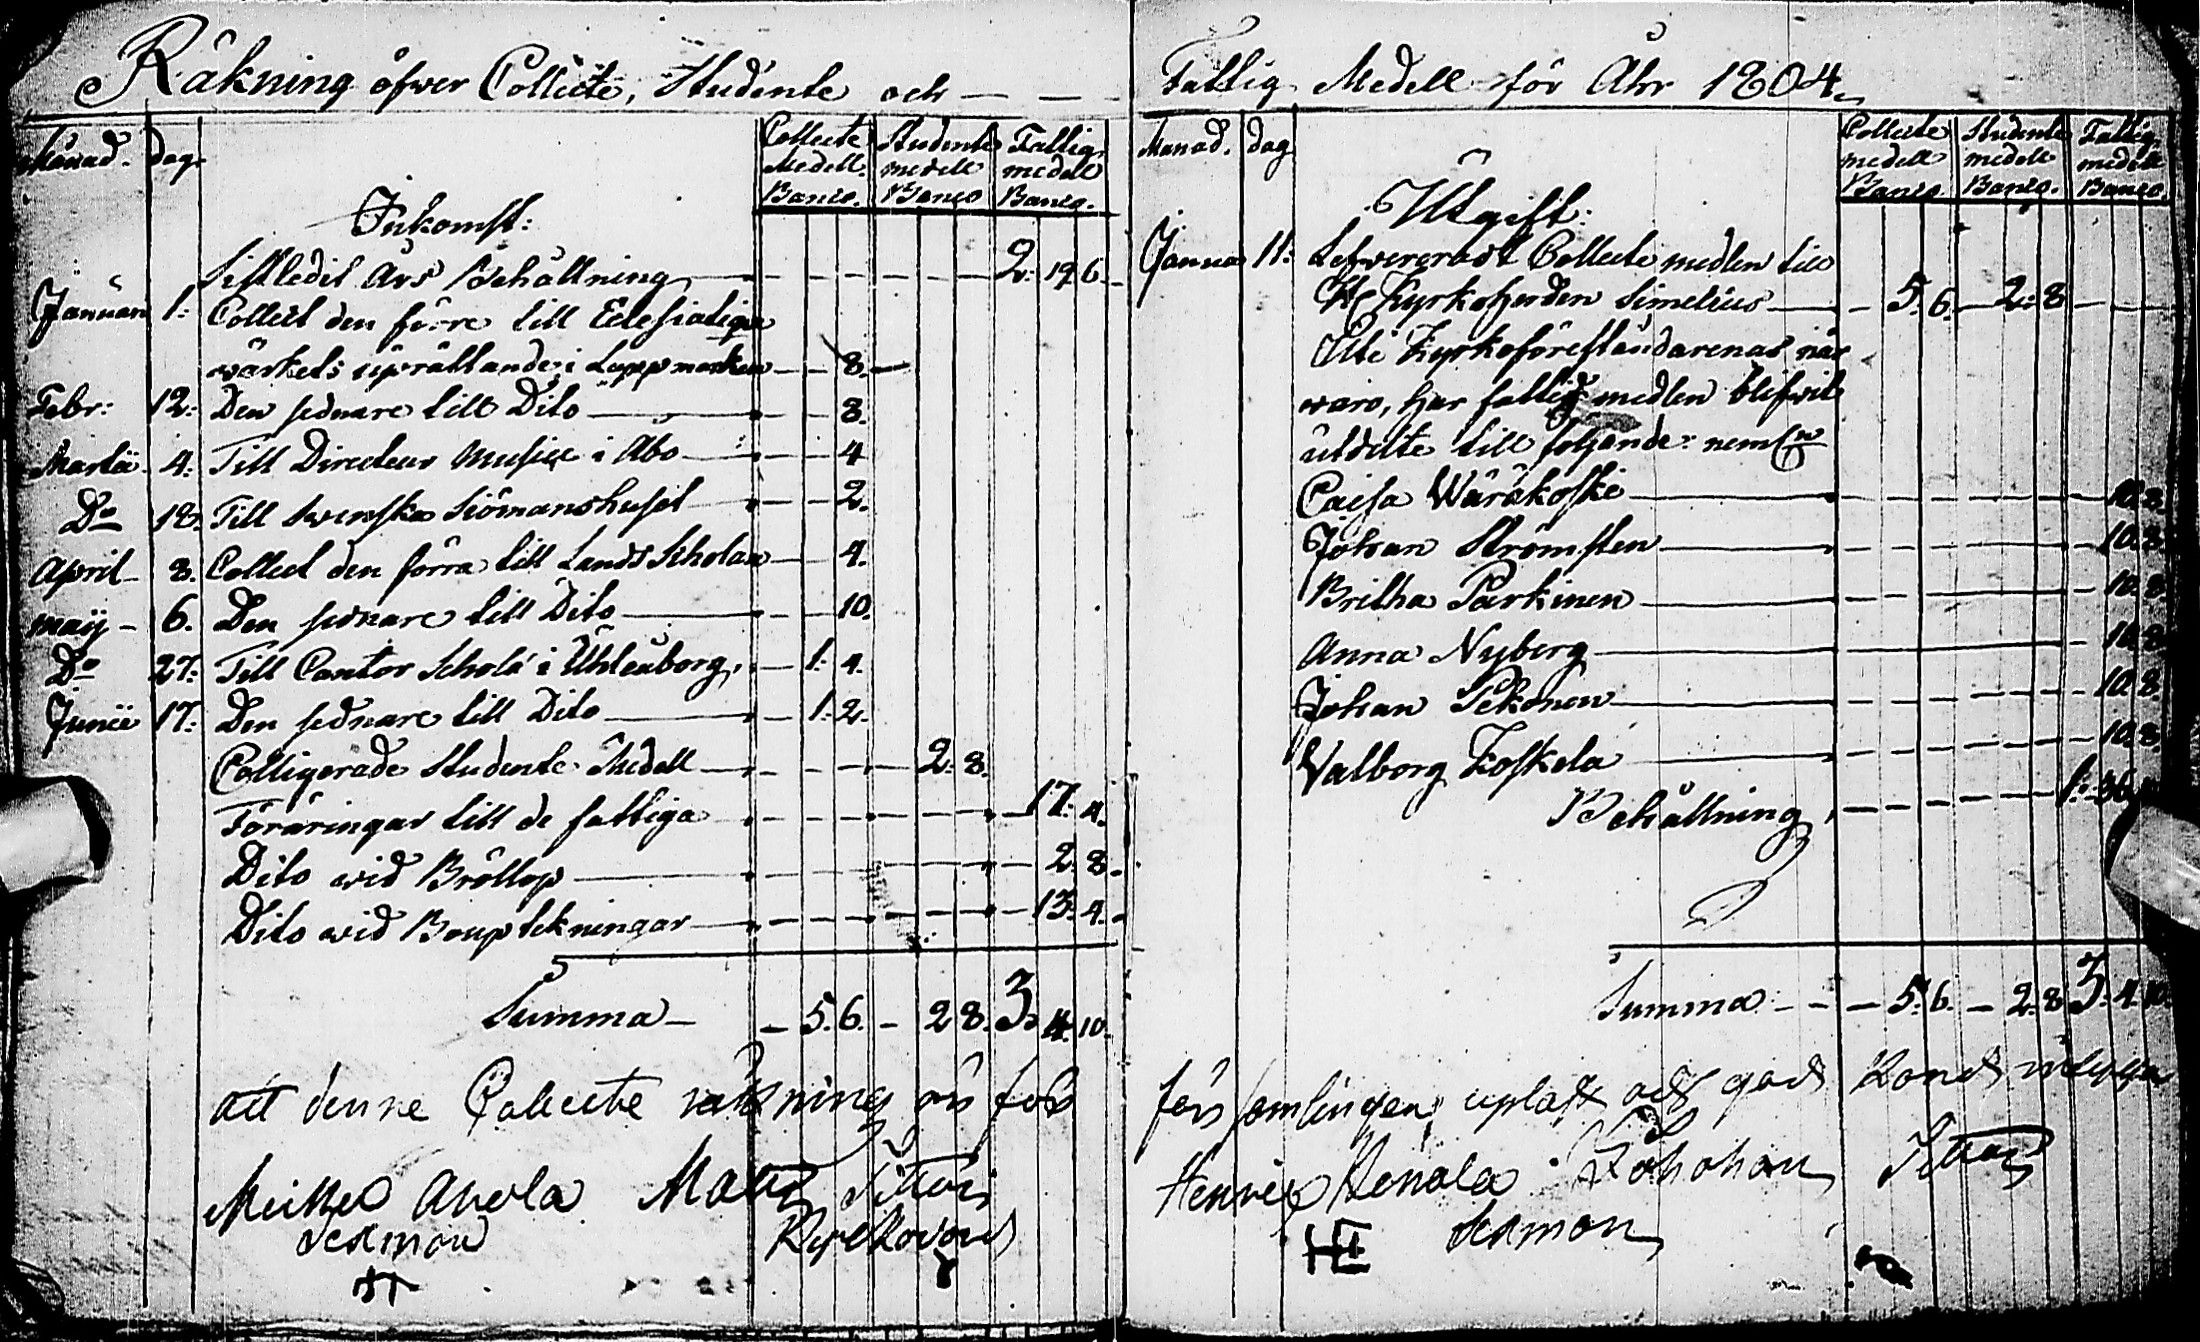 Räkning öfwer Collecte, Studente och — —
Månad. dag. Collecte Medell. Banco. Studente medell Banco Fattig medell Banco.
Inkomst:
Sistledit Års Behållning 2: 19 6.
Januari 1: Collect den förre till Eclesiatique
wärkets uprättande i Lappmarken 8.
Febr: 12: Den sednare till Dito 8.
Martii 4: Till Directeur Musice i Åbo 4
Do 18. Till Swenska Siömanshuset 2.
April 8. Collect den förra till Lands Scholan 4.
Maij 6. Den sednare till Dito 10.
Do 27: Till Cantor Schola i Uhleåborg 1: 4.
Junii 17: Den sednare till Dito 1: 2.
Colligerade Studente Medell 2: 8.
Föräringar till de fattiga 17: 4.
Dito wid Bröllop 2: 8.
Dito wid Bouptekningar 13: 4.
Summa — 5. 6. — 2 8. 3: 4: 10.
att denne Collecte räkning är för
Michel Avola Matts
sexmon Kyrkovord
Fattig Medell för Åhr 1804.
Månad. dag Collecte medell Banco. Studente medell Banco. Fattig medell Banco.
Utgift:
Januari 11: Lefwereradt Collecte medlen till
H Kyrkoherden Simelius 5. 6. 2: 8
Uti Kyrkoföreståndarenas när
waro, har fattig medlen blifwit
utdelte till följande: neml
Caisa Wäräkoski 10. 8.
Johan Strömsten 10. 8.
Britha Parkinen 10. 8.
Anna Nyberg 10. 8.
Johan Pekonen 10. 8.
Valborg Koskela 10. 8.
Behållning 1: 36
Summa 5. 6. — 2: 8 3: 4: 10
församlingen upläst och god
Henric
sexmon
HE